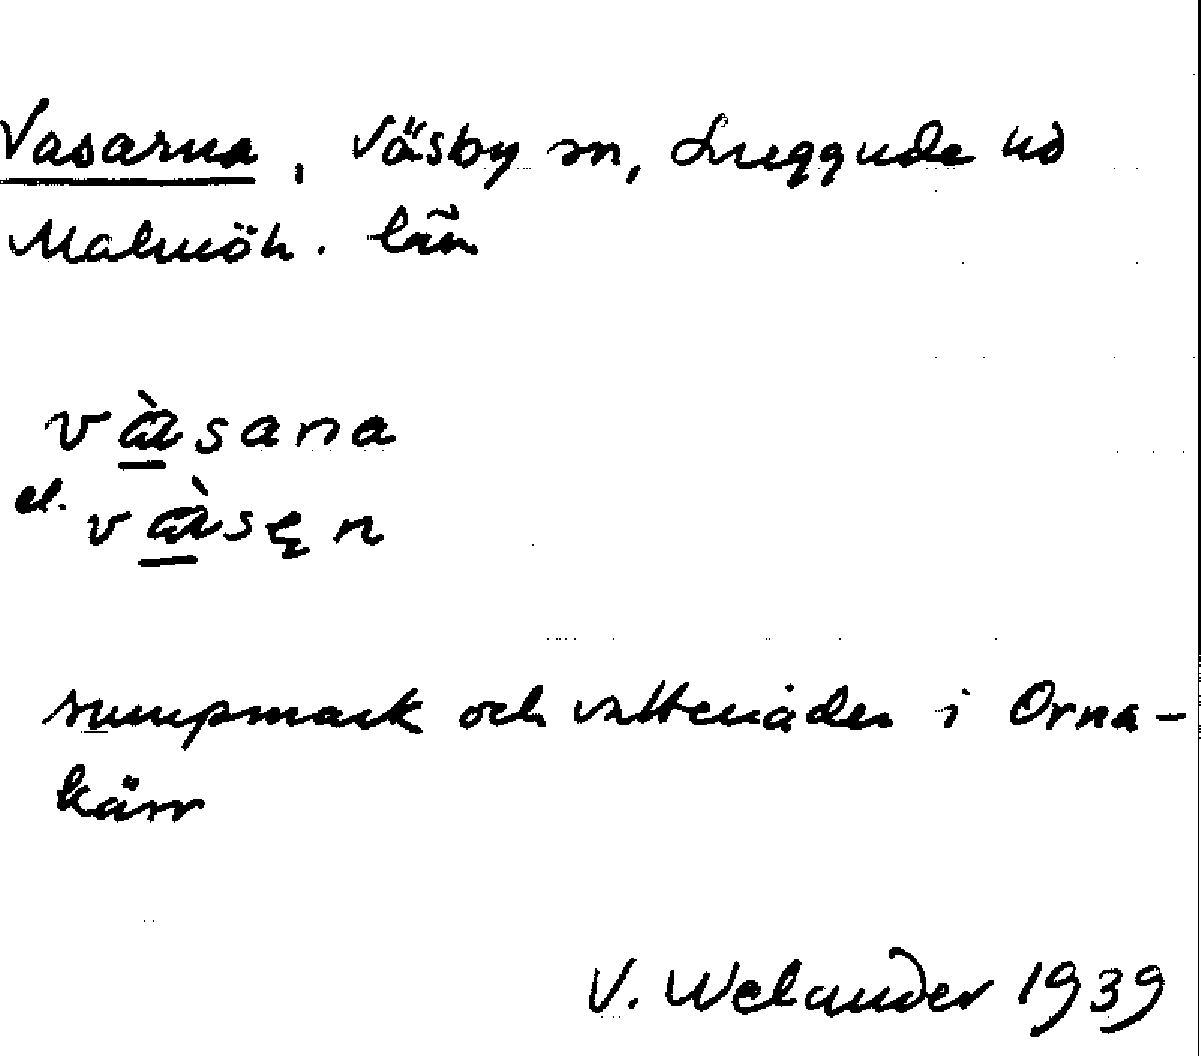 Vasarna, Väsby sn, Luggude hd
Malmöh. län
vàsana
el. vàsen
sumpmark och vattenåder i Orna-
kärr
V. Welander 1939